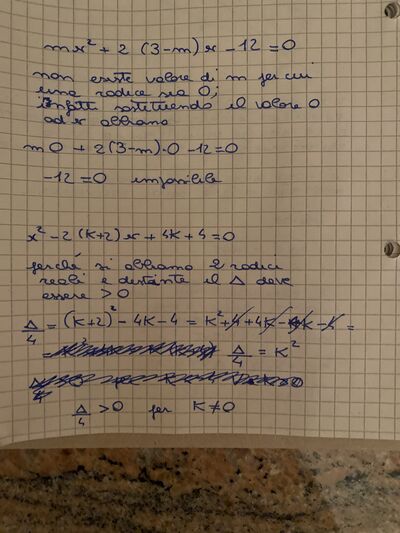 mx² + 2 (3-m)x - 12 = 0
non esiste valore di m per cui
una radice sia 0;
infatti sostituendo il valore 0
ad x abbiamo
m0 + 2(3-m)·0 - 12 = 0
-12 = 0 impossibile
x² - 2(K+2)x + 4K + 4 = 0
perché si abbiano 2 radici
reali e distinte il Δ deve
essere > 0
Δ/4 = (K+2)² - 4K - 4 = K² + 4 + 4K - 4K - 4 =
Δ/4 = K²
Δ/4 > 0 per K ≠ 0